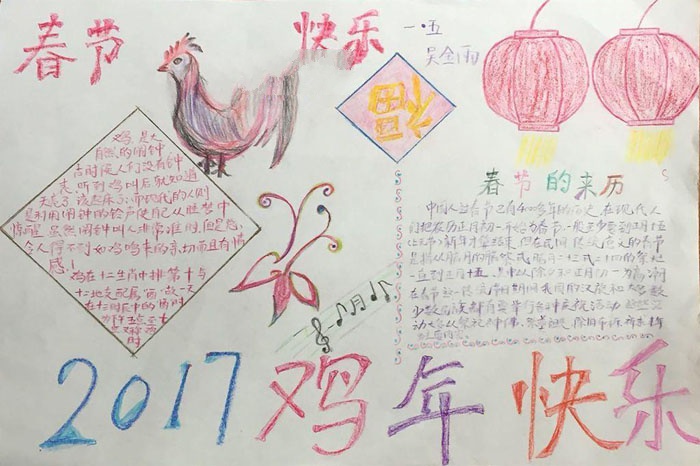 春节 快乐
一·五
吴金雨
福
鸡是大
自然的闹钟
古时候人们没有钟
表,听到鸡叫后就知道
天亮了该起床了;而现代的人则
是利用闹钟的铃声使自己从睡梦中
惊醒虽然闹钟叫人非常准时,但是总
令人得不到如鸡鸣来的亲切而且有情
感!
鸡在十二生肖中排第十与
十二地支配属"酉"故一天
在十二时辰中的酉时
春节的来历
中国人过春节已有4000多年的历史 在现代人
们把农历正月初一开始为春节一般至少要到正月十五
新年才算结束 但在民间 传统意义的春节
是指从腊月的腊祭或腊月二十三或二十四的祭灶
一直到正月十五 其中以除夕和正月初一为高潮
在春节这一传统节日期间我国的汉族和
少数民族都有要举行各种庆祝活动
2017 鸡年快乐